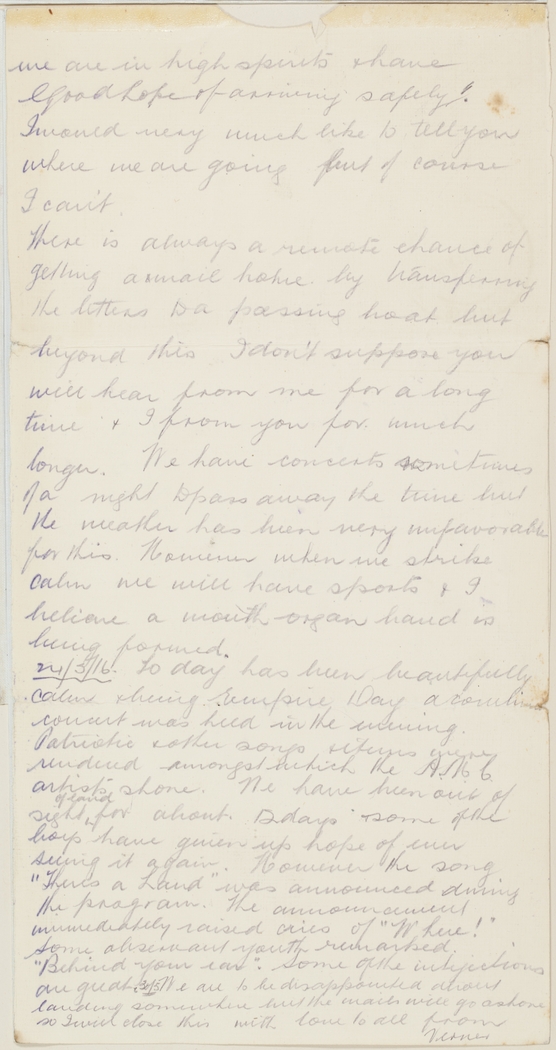 we are in high spirits & have
good hope of arriving safely".
I would very much like to tell you
where we are going but of course
I can't.
There is always a remote chance of
getting a mail home by transferring
the letters to a passing boat but
beyond this I don't suppose you
will hear from me for a long
time & I from you for much
longer. We have concerts sometimes
of a night to pass away the time but
the weather has been very unfavorable
for this. However when we strike
calm we will have sports & I
believe a mouth-organ band is
being formed.
24/5/16. To day has been beautifully
calm & being Empire Day a
concert was held in the evening.
Patriotic & other songs & items were
rendered amongst which the A.M.C
artists shone. We have been out of
sight of land for about days & some of the
boys have given up hope of ever
seeing it again. However the song
"There's a Land" was announced during
the program. The announcement
immediately raised cries of "Where!"
Some observant youth remarked.
"Behind your ear". Some of the interjections
are great. We are to be disappointed about
landing somewhere but the mails will go ashore
so I will close this with love to all from
Verner